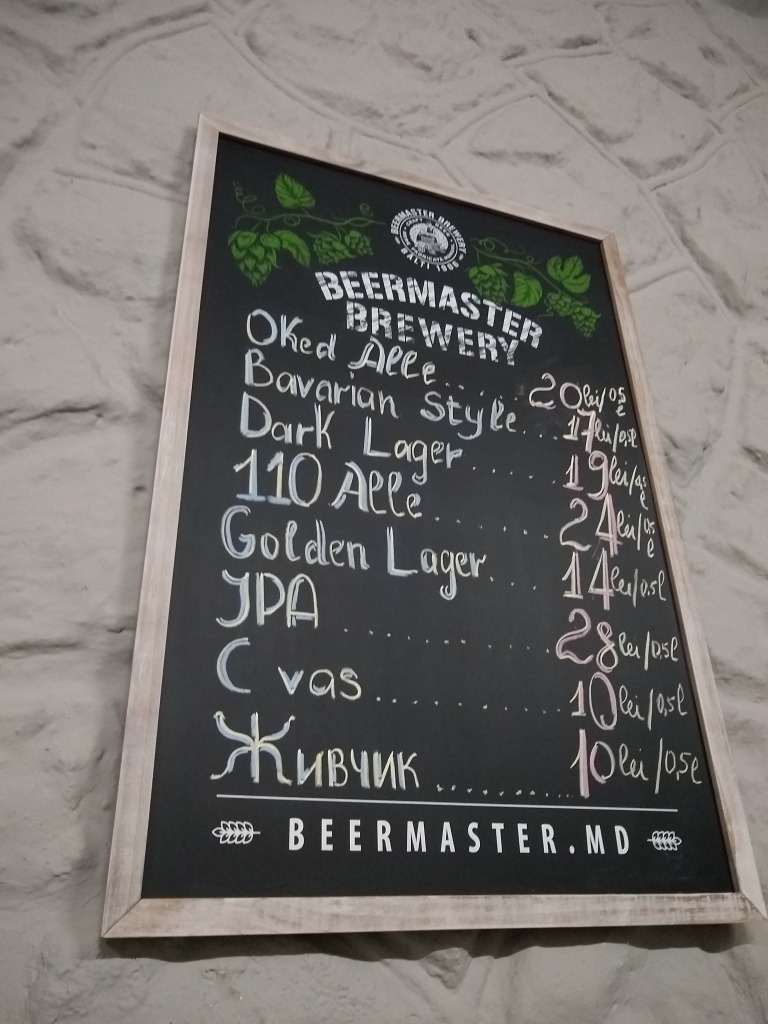 BEERMASTER BREWERY
CRAFT BEER
BĂLȚI 1996
BEERMASTER
BREWERY
Oked Alle..... 20 lei/0,5 l
Bavarian Style... 17 lei/0,5l
Dark Lager...... 19 lei/0,5
110 Alle....... 24 lei/0,5 l
Golden Lager.... 14 lei/0,5l
JPA ............ 28 lei/0,5l
Cvas............ 10 lei/0,5l
Живчик ......... 10 lei/0,5l
BEERMASTER.MD